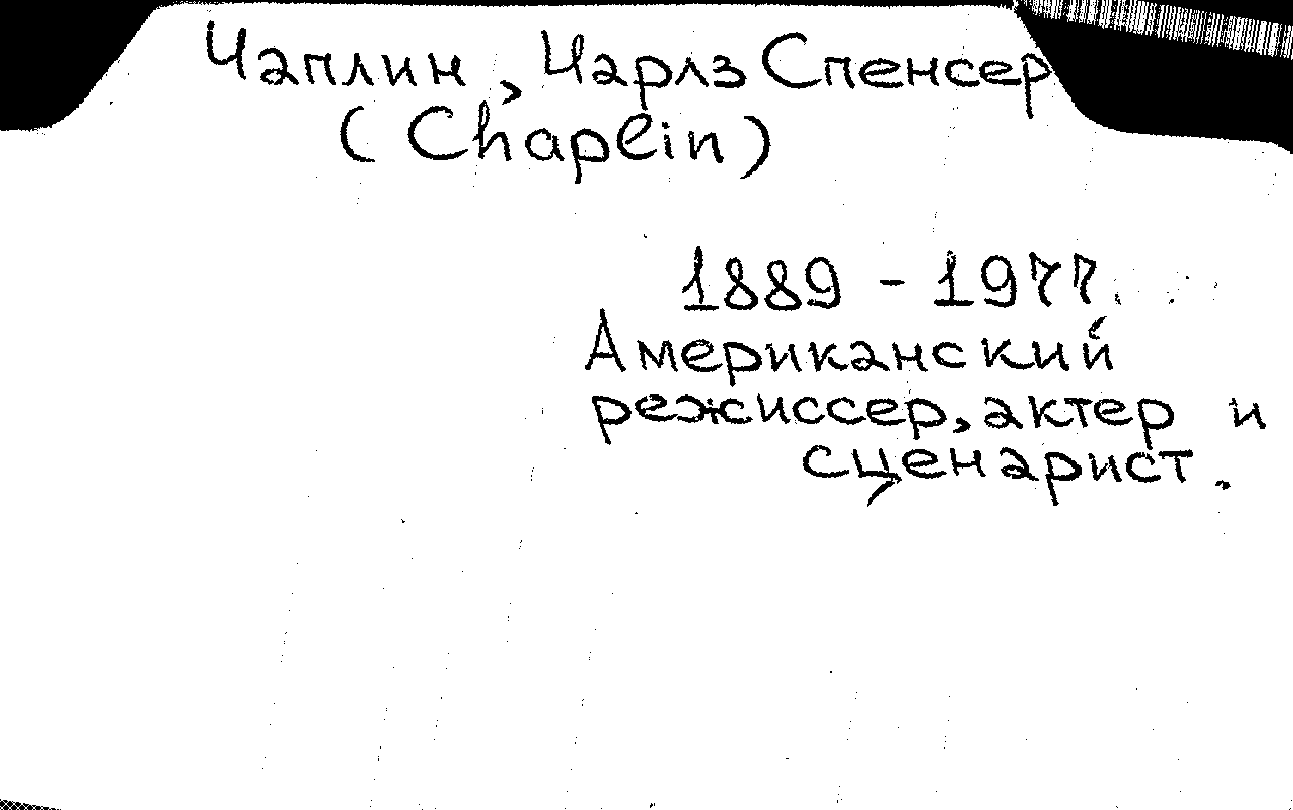 Чаплин, Чарлз Спенсер
(Chaplin)
1889 - 1977
Американский
режиссер, актер и
сценарист.